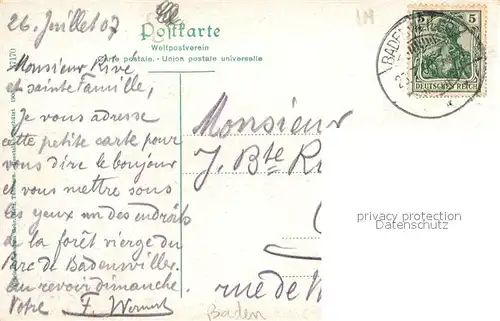 26 Juillet 07
Postkarte
Weltpostverein
Carte postale. - Union postale universelle
5 5
DEUTSCHES REICH
Monsieur Rivé
et sainte Famille,
Je vous adresse
cette petite carte pour
vous dire le bonjour
et vous mettre sous
les yeux un des endroits
de la forêt vierge du
Parc de Badenwiller.
au revoir dimanche.
Votre F.
Monsieur
J. Bte
rue de
privacy protection
Datenschutz
Baden